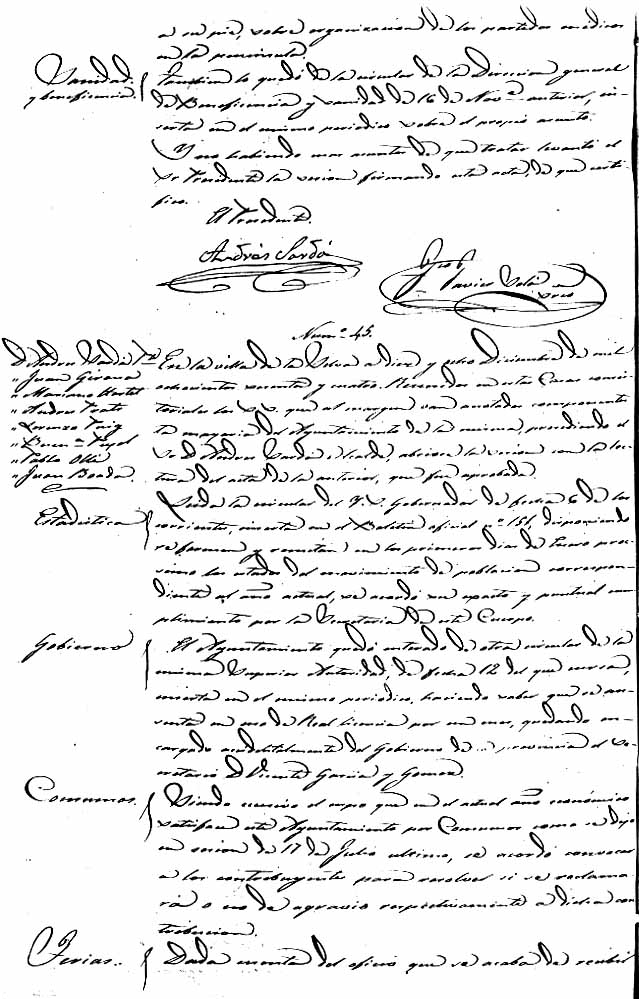 a su pié, sobre organizacion de los partidos médicos
en la peninsula.
Sanidad
y beneficencia.
Tambien lo quedó de la circular de la Direccion general
de Beneficencia y sanidad de 16 de Nov.e anterior, in-
serta en el mismo periodico sobre el propio asunto.
Y no habiendo mas asuntos de que tratar levantó el
Sr Presidente la sesion firmando esta acta, de que certi-
fico.
El Presidente
Andrés Sardá
Javier
Srio
Num.o 45.
D. Andres Sardá
" Juan Girona
" Mariano
" Andres
" Lorenzo Puig
" Pujol
" Pablo Ollé
" Juan Boada.
En la villa de la Selva a diez y ocho Diciembre de mil
ochocientos sesenta y cuatro. Reunidos en estas Casas consis-
toriales los SS. que al margen van anotados componentes
la mayoria del Ayuntamiento de la misma, presidiendo el
Sr D. Andres Sardá Alcalde, abriose la sesion con la lec-
tura del acta de la anterior, que fue aprobada.
Estadistica
Leida la circular del Y. S. Gobernador de fecha 6 de los
corrientes, inserta en el Boletin oficial n.o 151, disponiendo
se formen y remitan en los primeros dias de Enero prox-
simo los estados del movimiento de poblacion correspon-
diente al año actual, se acordó su exacto y puntual cum-
plimiento por la Secretaria de este Cuerpo.
Gobierno
El Ayuntamiento quedó enterado de otra circular de la
misma Superior Autoridad, de fecha 12 del que cursa,
inserta en el mismo periodico, haciendo saber que se au-
senta en uso de Real licencia por un mes, quedando en-
cargado accidentalmente del Gobierno de provincia el Se-
cretario D. Vicente Garcia y Gomez.
Consumos.
Siendo escesivo el cupo que en el actual año económico
satisface este Ayuntamiento por Consumos como se dijo
en sesion de 17 de Julio ultimo, se acordó convocar
a los contribuyentes para resolver si se reclama-
rá o no de agravio respectivamente a dicha con-
tribucion.
Ferias.
Dada cuenta del oficio que se acaba de recibir